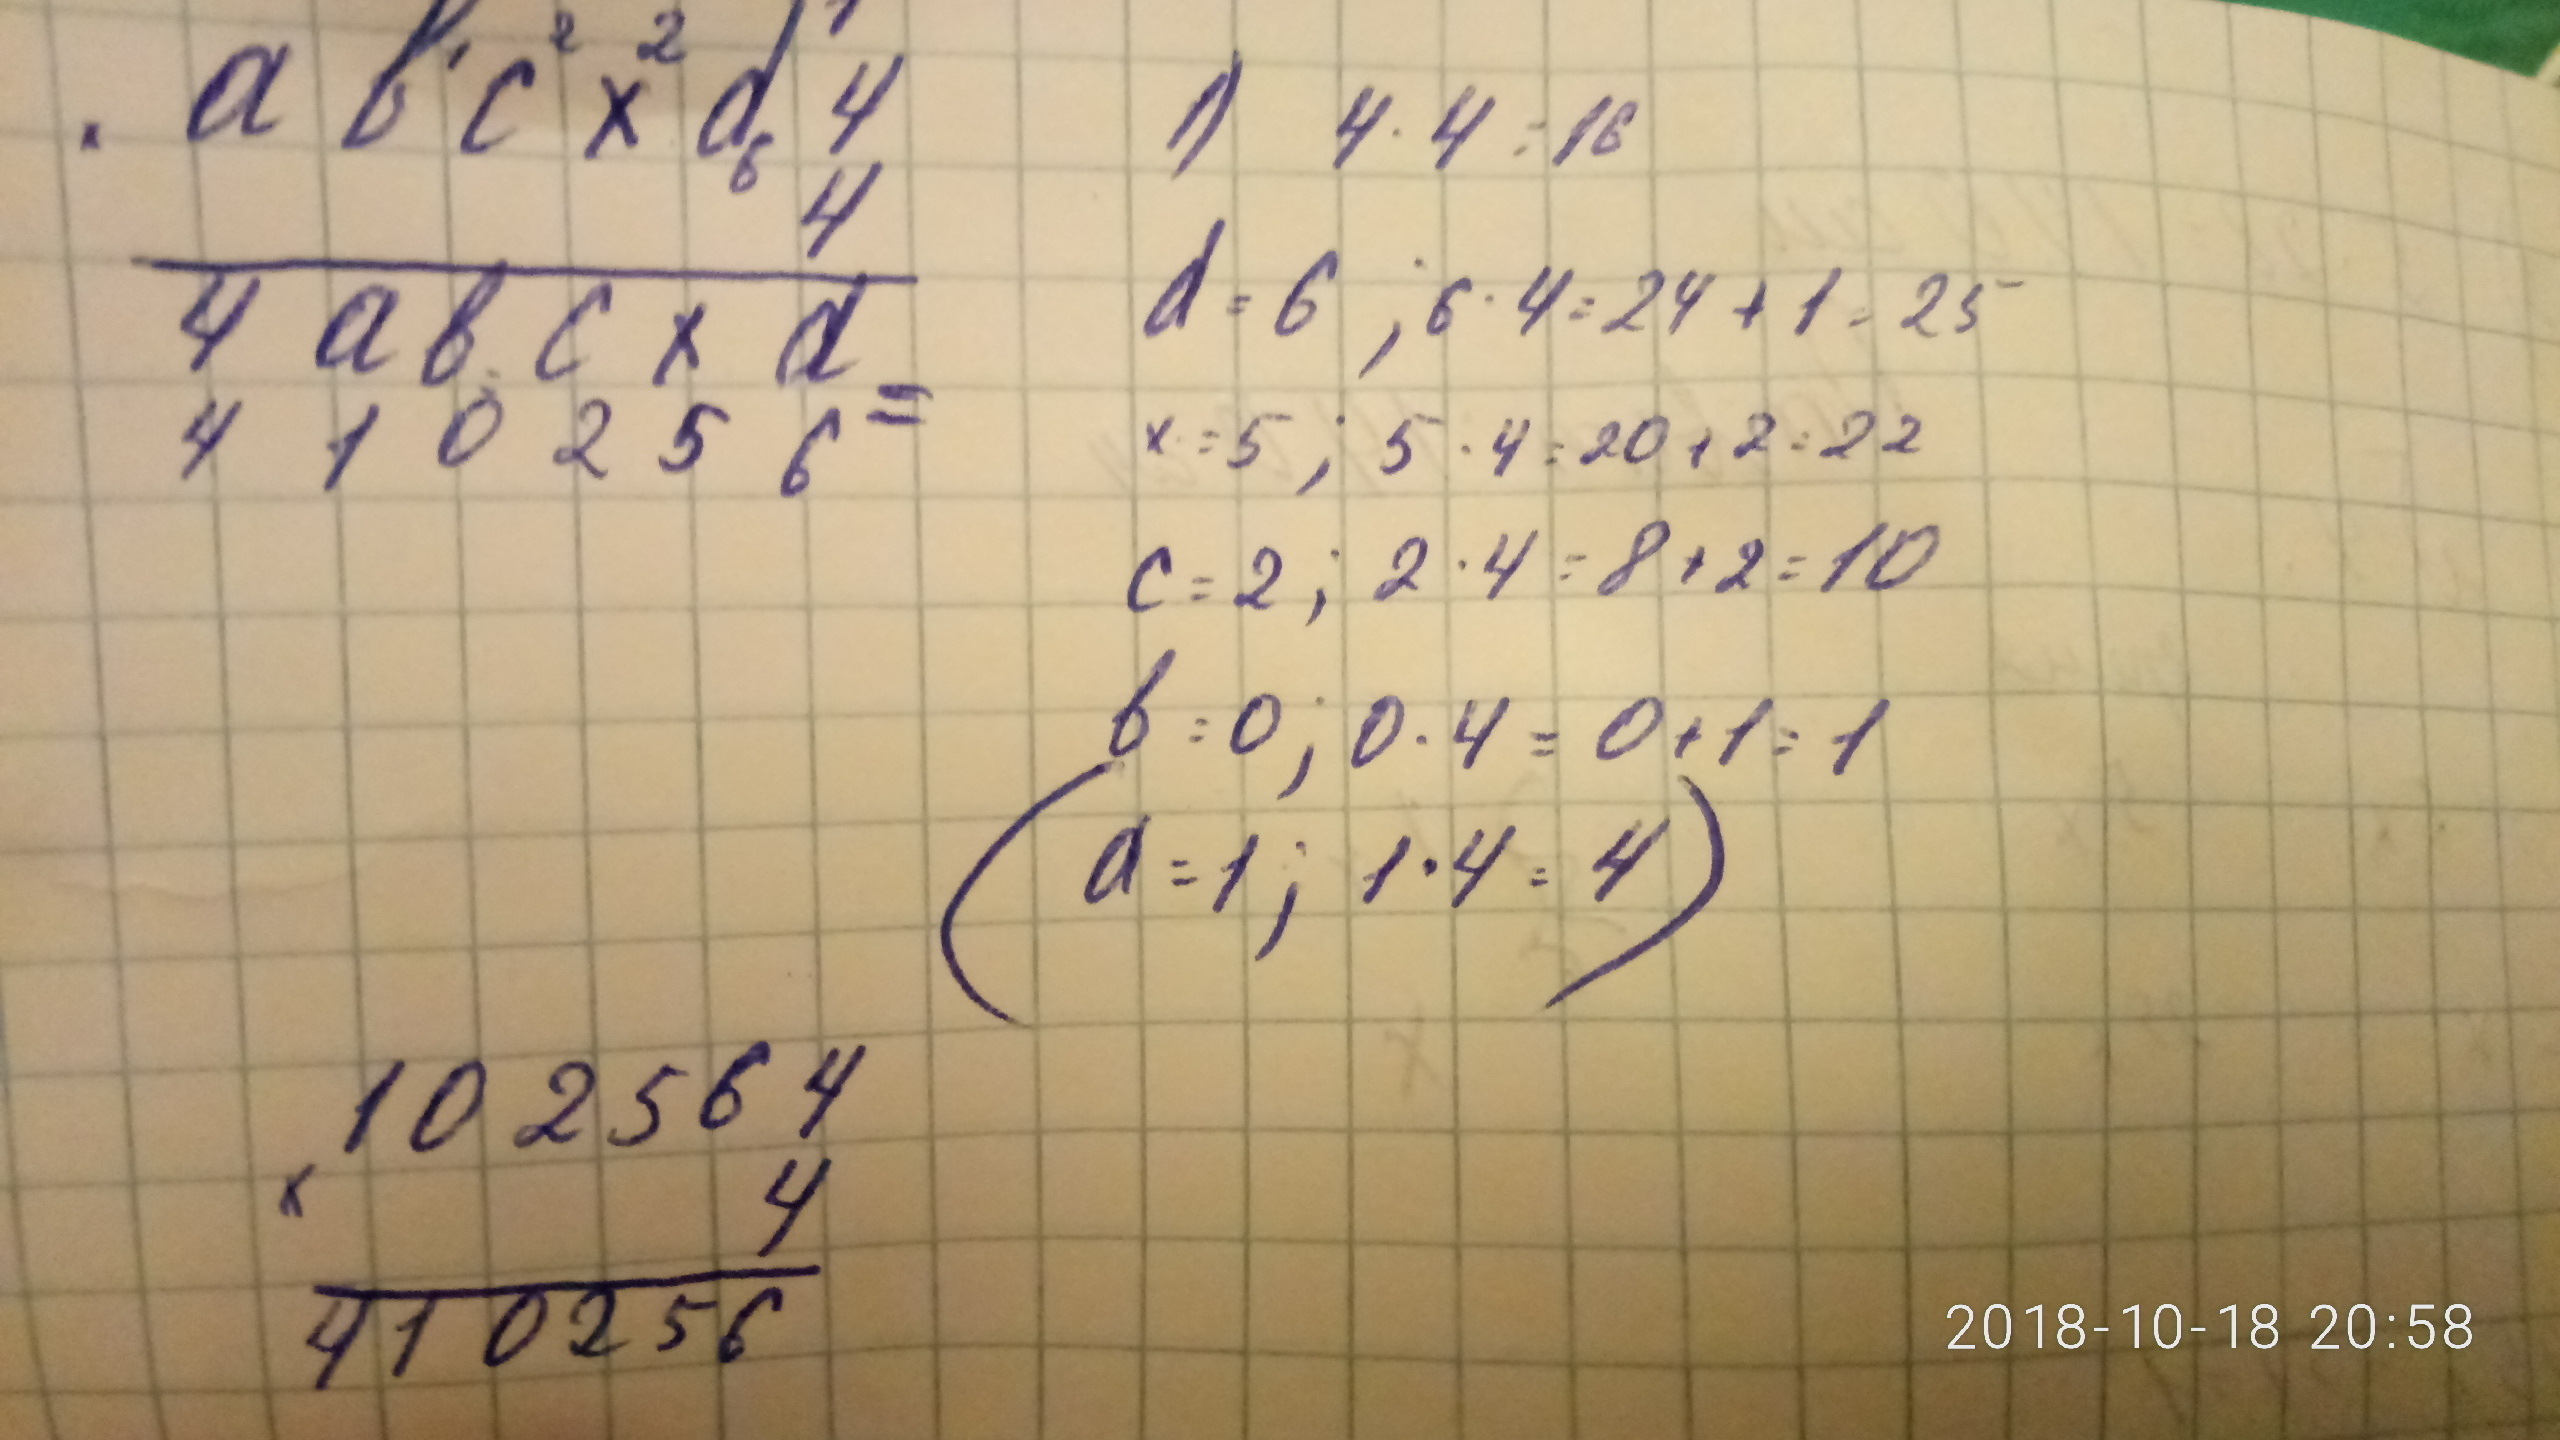 1
1 2 2
× a b c x d 4
6
4
4 a b c x d
4 1 0 2 5 6 =
1) 4 · 4 = 16
d = 6 ; 6 · 4 = 24 + 1 = 25
x = 5 ; 5 · 4 = 20 + 2 = 22
c = 2 ; 2 · 4 = 8 + 2 = 10
b = 0 ; 0 · 4 = 0 + 1 = 1
( a = 1 ; 1 · 4 = 4 )
102564
× 4
410256
2018-10-18 20:58